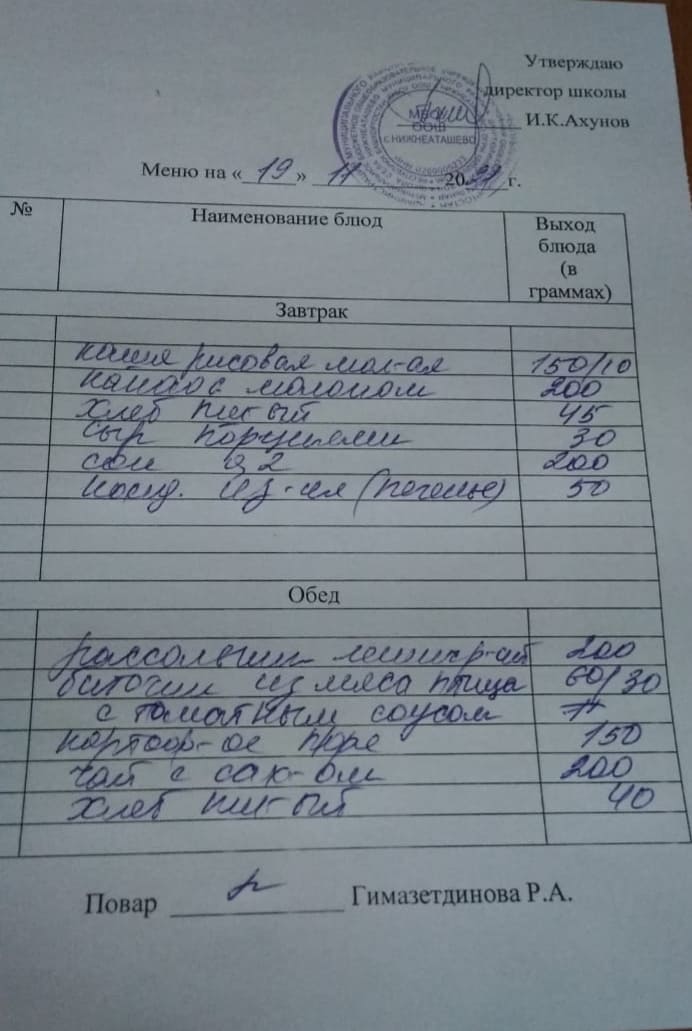 Утверждаю
директор школы
И.К.Ахунов
МБОУ
ООШ
с.НИЖНЕАТАШЕВО
Меню на «19» 11 20 г.
№ Наименование блюд Выход блюда (в граммах)
Завтрак
каша рисовая мол-ая 150/10
какао с молоком 200
хлеб пш-ый 45
сыр порциями 30
сок 0,2 200
конд. из-ия (печенье) 50
Обед
рассольник ленингр-ий 200
биточки из мяса птица 60/30
с томатным соусом
картоф-ое пюре 150
чай с сах-ом 200
хлеб пш-ый 40
Повар Гимазетдинова Р.А.